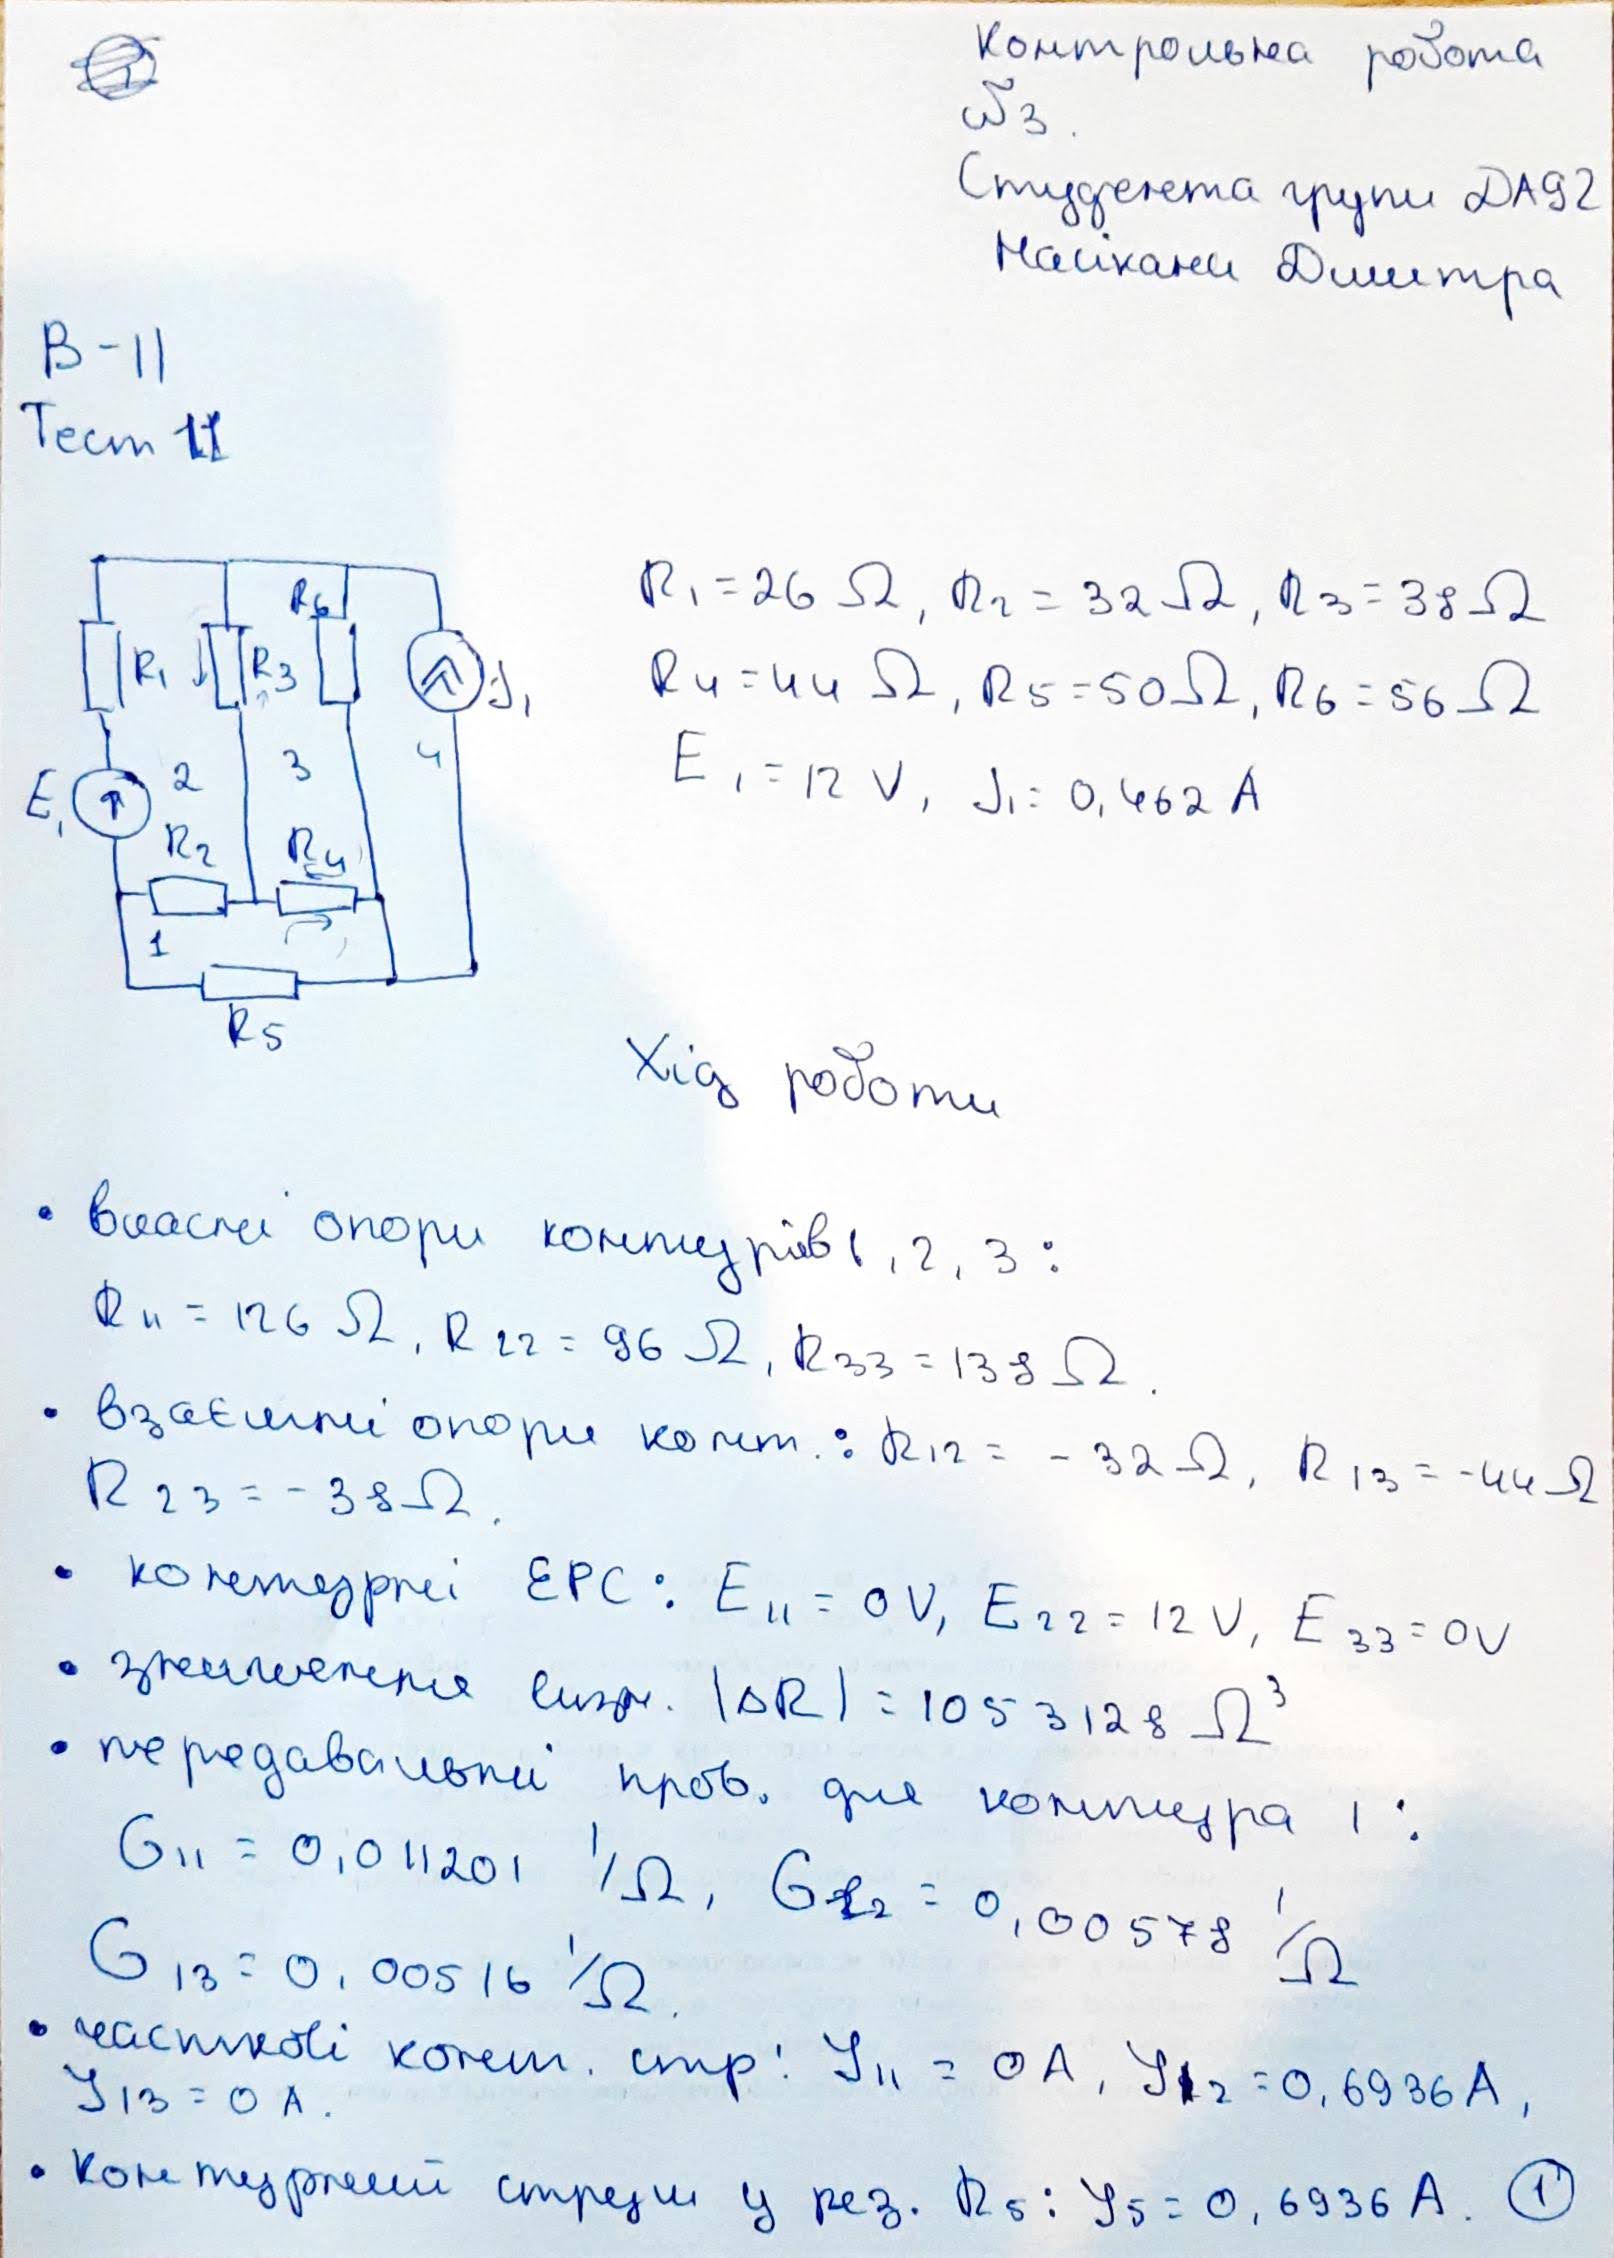 Контрольна робота
№3.
Студента групи DA92
Дмитра
В-11
Тест 11
R6
R1
R3
J1
E1
2
3
4
R2
R4
1
R5
R1=26 Ω, R2=32Ω, R3=38Ω
R4=44 Ω, R5=50Ω, R6=56Ω
E1=12 V, J1=0,462 A
Хід роботи
• власні опори контурів 1, 2, 3 :
R11=126 Ω, R22=96 Ω, R33=138Ω.
• взаємні опори конт.: R12= -32Ω, R13=-44Ω
R23=-38Ω.
• контурні ЕРС: E11=0V, E22=12V, E33=0V
• значення визн. |ΔR|=1053128 Ω³
• передавальні пров. для контура 1 :
G11=0,011201 1/Ω, G12=0,00578 1/Ω
G13=0,00516 1/Ω.
• часткові конт. стр: J11=0A, J12=0,6936A,
J13=0A.
• контурний струм у рез. R5: J5=0,6936A. 1